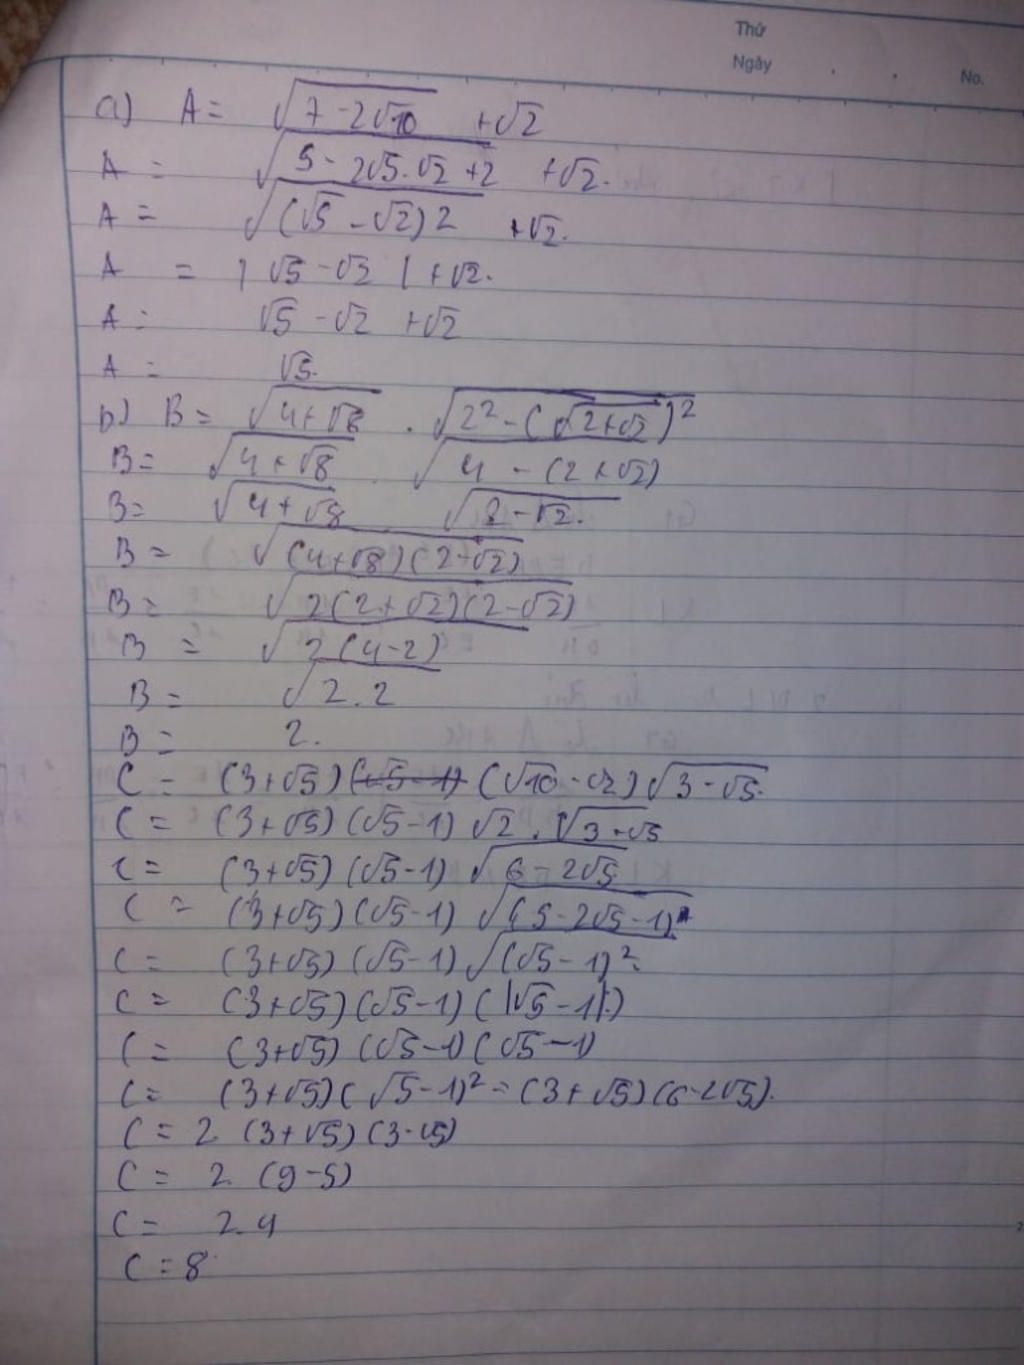 Thứ
Ngày . . No.
a) A = √(7 - 2√10) + √2
A = √(5 - 2√5.√2 + 2) + √2.
A = √((√5 - √2)2) + √2.
A = |√5 - √2| + √2.
A = √5 - √2 + √2
A = √5.
b) B = √(4 + √8) . √(2² - (√(2 + √2))²)
B = √(4 + √8) . √(4 - (2 + √2))
B = √(4 + √8) √(2 - √2).
B = √((4 + √8)(2 - √2))
B = √(2(2 + √2)(2 - √2))
B = √(2(4 - 2))
B = √(2.2)
B = 2.
C = (3 + √5) (√10 - √2) √(3 - √5).
C = (3 + √5)(√5 - 1) √2 . √(3 - √5)
C = (3 + √5)(√5 - 1) √(6 - 2√5)
C = (3 + √5)(√5 - 1) √((5 - 2√5 - 1)
C = (3 + √5)(√5 - 1) √((√5 - 1)²).
C = (3 + √5)(√5 - 1) (|√5 - 1|)
C = (3 + √5)(√5 - 1)(√5 - 1)
C = (3 + √5)(√5 - 1)² = (3 + √5)(6 - 2√5).
C = 2 (3 + √5)(3 - √5)
C = 2. (9 - 5)
C = 2.4
C = 8